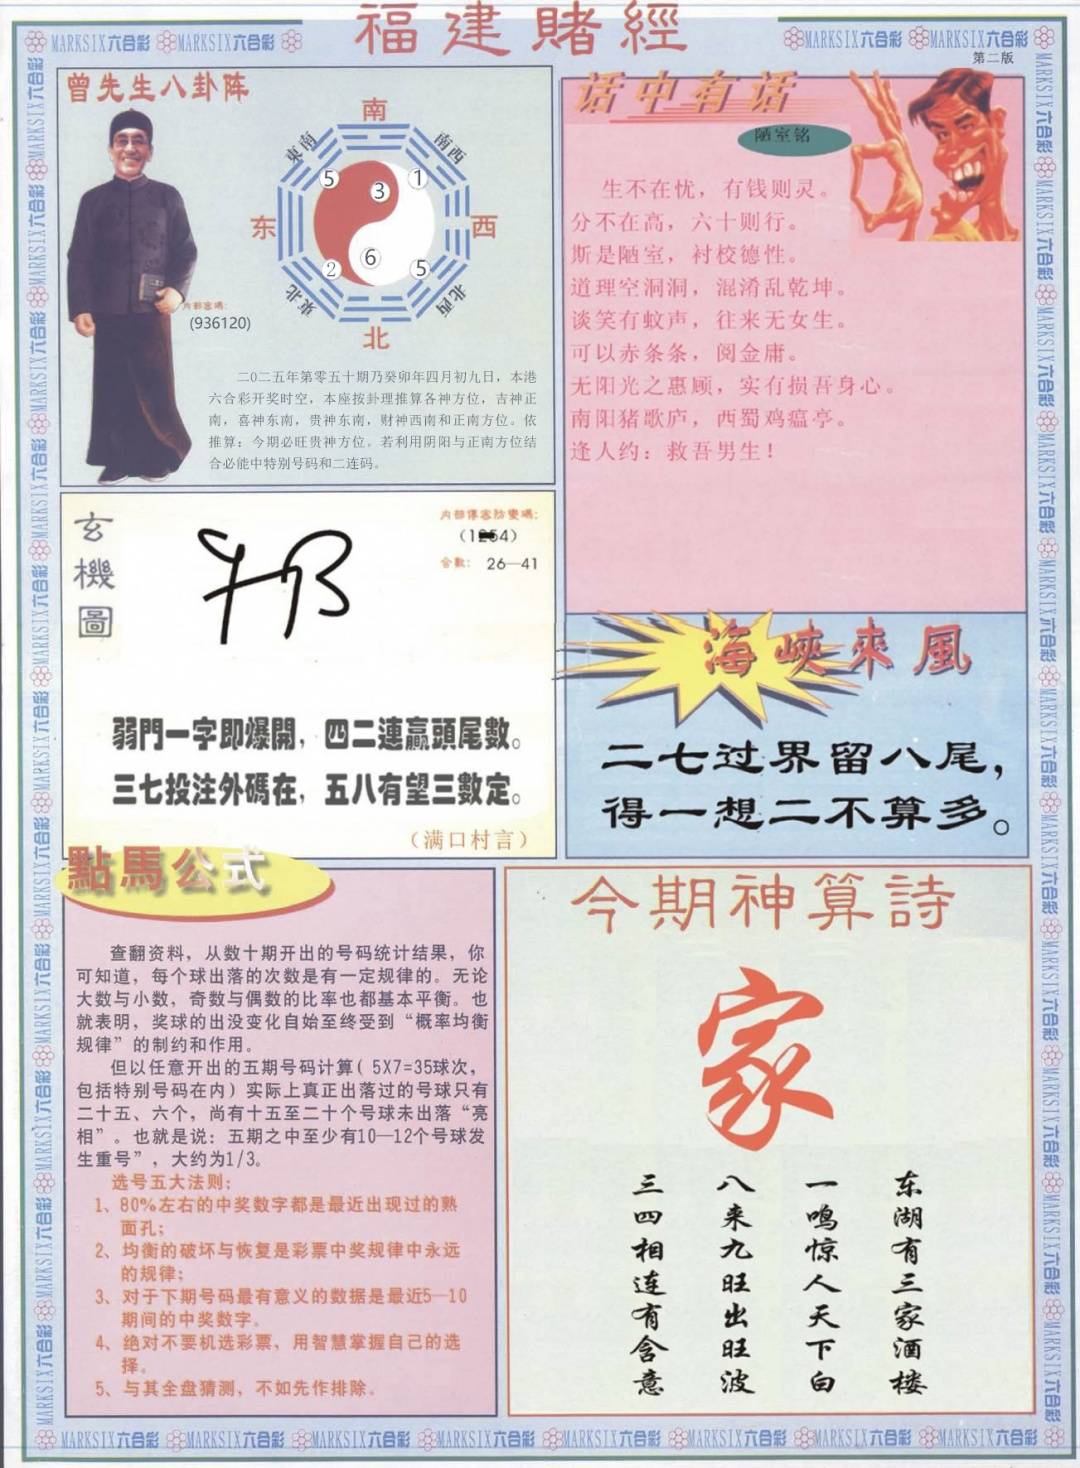 福建賭經
MARKSIX六合彩 MARKSIX六合彩 MARKSIX六合彩 MARKSIX六合彩
第二版
曾先生八卦阵
南
東南
南西
5
3
1
东
西
6
2
5
東北
北西
北
内部密碼:
(936120)
二0二五年第零五十期乃癸卯年四月初九日，本港
六合彩开奖时空，本座按卦理推算各神方位，吉神正
南，喜神东南，贵神东南，财神西南和正南方位。依
推算：今期必旺贵神方位。若利用阴阳与正南方位结
合必能中特别号码和二连码。
话中有话
陋室铭
生不在忧，有钱则灵。
分不在高，六十则行。
斯是陋室，衬校德性。
道理空洞洞，混淆乱乾坤。
谈笑有蚊声，往来无女生。
可以赤条条，阅金庸。
无阳光之惠顾，实有损吾身心。
南阳猪歌庐，西蜀鸡瘟亭。
逢人约：救吾男生！
玄機圖
内部傳密防變碼:
合數: 26—41
弱門一字即爆開，四二連贏頭尾數。
三七投注外碼在，五八有望三數定。
（满口村言）
海峽來風
二七过界留八尾，
得一想二不算多。
點馬公式
查翻资料，从数十期开出的号码统计结果，你
可知道，每个球出落的次数是有一定规律的。无论
大数与小数，奇数与偶数的比率也都基本平衡。也
就表明，奖球的出没变化自始至终受到“概率均衡
规律”的制约和作用。
但以任意开出的五期号码计算( 5X7=35球次，
包括特别号码在内) 实际上真正出落过的号球只有
二十五、六个，尚有十五至二十个号球未出落“亮
相”。也就是说：五期之中至少有10—12个号球发
生重号”，大约为1/3。
选号五大法则:
1、80%左右的中奖数字都是最近出现过的熟
面孔；
2、均衡的破坏与恢复是彩票中奖规律中永远
的规律；
3、对于下期号码最有意义的数据是最近5—10
期间的中奖数字。
4、绝对不要机选彩票，用智慧掌握自己的选
择。
5、与其全盘猜测，不如先作排除。
今期神算詩
家
东湖有三家酒楼
一鸣惊人天下白
八来九旺出旺波
三四相连有含意
MARKSIX六合彩 MARKSIX六合彩 MARKSIX六合彩 MARKSIX六合彩 MARKSIX六合彩 MARKSIX六合彩 MARKSIX六合彩 MARKSIX六合彩